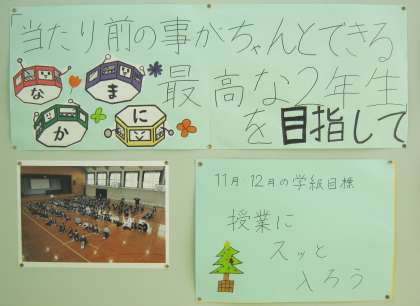 「当たり前の事がちゃんとできる
最高な2年生
を目指して
な
ま
か
に
11月 12月の学級目標
授業に
スッと
入ろう